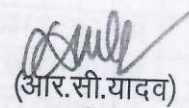 (आर.सी.यादव)